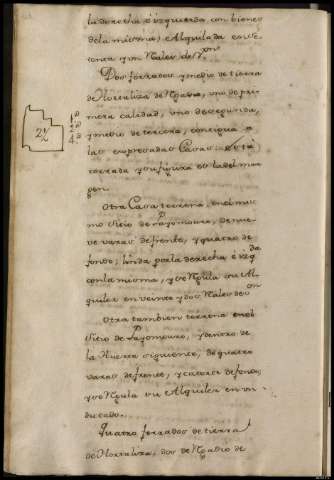 la derecha è izquierda con bienes
de la misma; è Alquilada en se-
senta y un Reales de V.on
Dos ferrados y medio de tierra
de Hortaliza de Regadio, uno de pri-
mera calidad, uno de segunda,
y medio de tercera, contigua à
las expresadas Casas està
cerrada y su figura es la del mar-
gen.
22
1.ª
2.ª
4.ª
Otra Casa terrena, en el mis-
mo sitio de Pagomouro, de nue-
ve varas de frente, y quatro de
fondo; linda por la derecha è izq.da
con la misma, y se Regula su Al-
quiler en veinte y dos Reales de V.on
Otra tambien terrena en el
sitio de Pagomouro, y dentro de
la Huerta siguiente, de quatro
varas de frente, y catorce de fondo,
y se Regula su Alquiler en un
ducado.
Quatro ferrados de tierra
de Hortaliza, dos de Regadio de